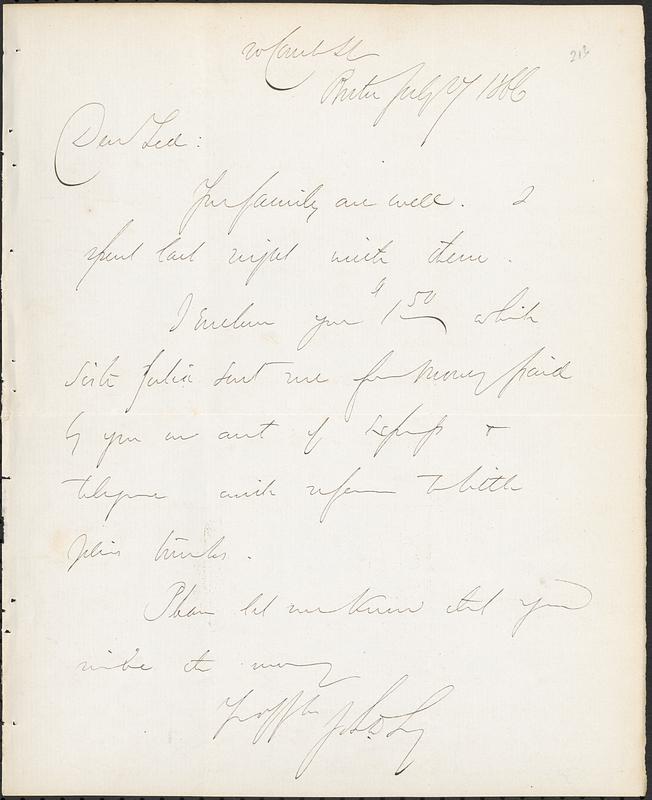 20 Court St
213
Boston July 27 1866
Dear Ted:
Your family are well. I
spent last night with them.
I enclose your $1 50 which
Sister Julia sent me for money paid
by you on acct of express &
telegrams with reference to little
trunks.
Please let me know that you
receive the money
Yr aff